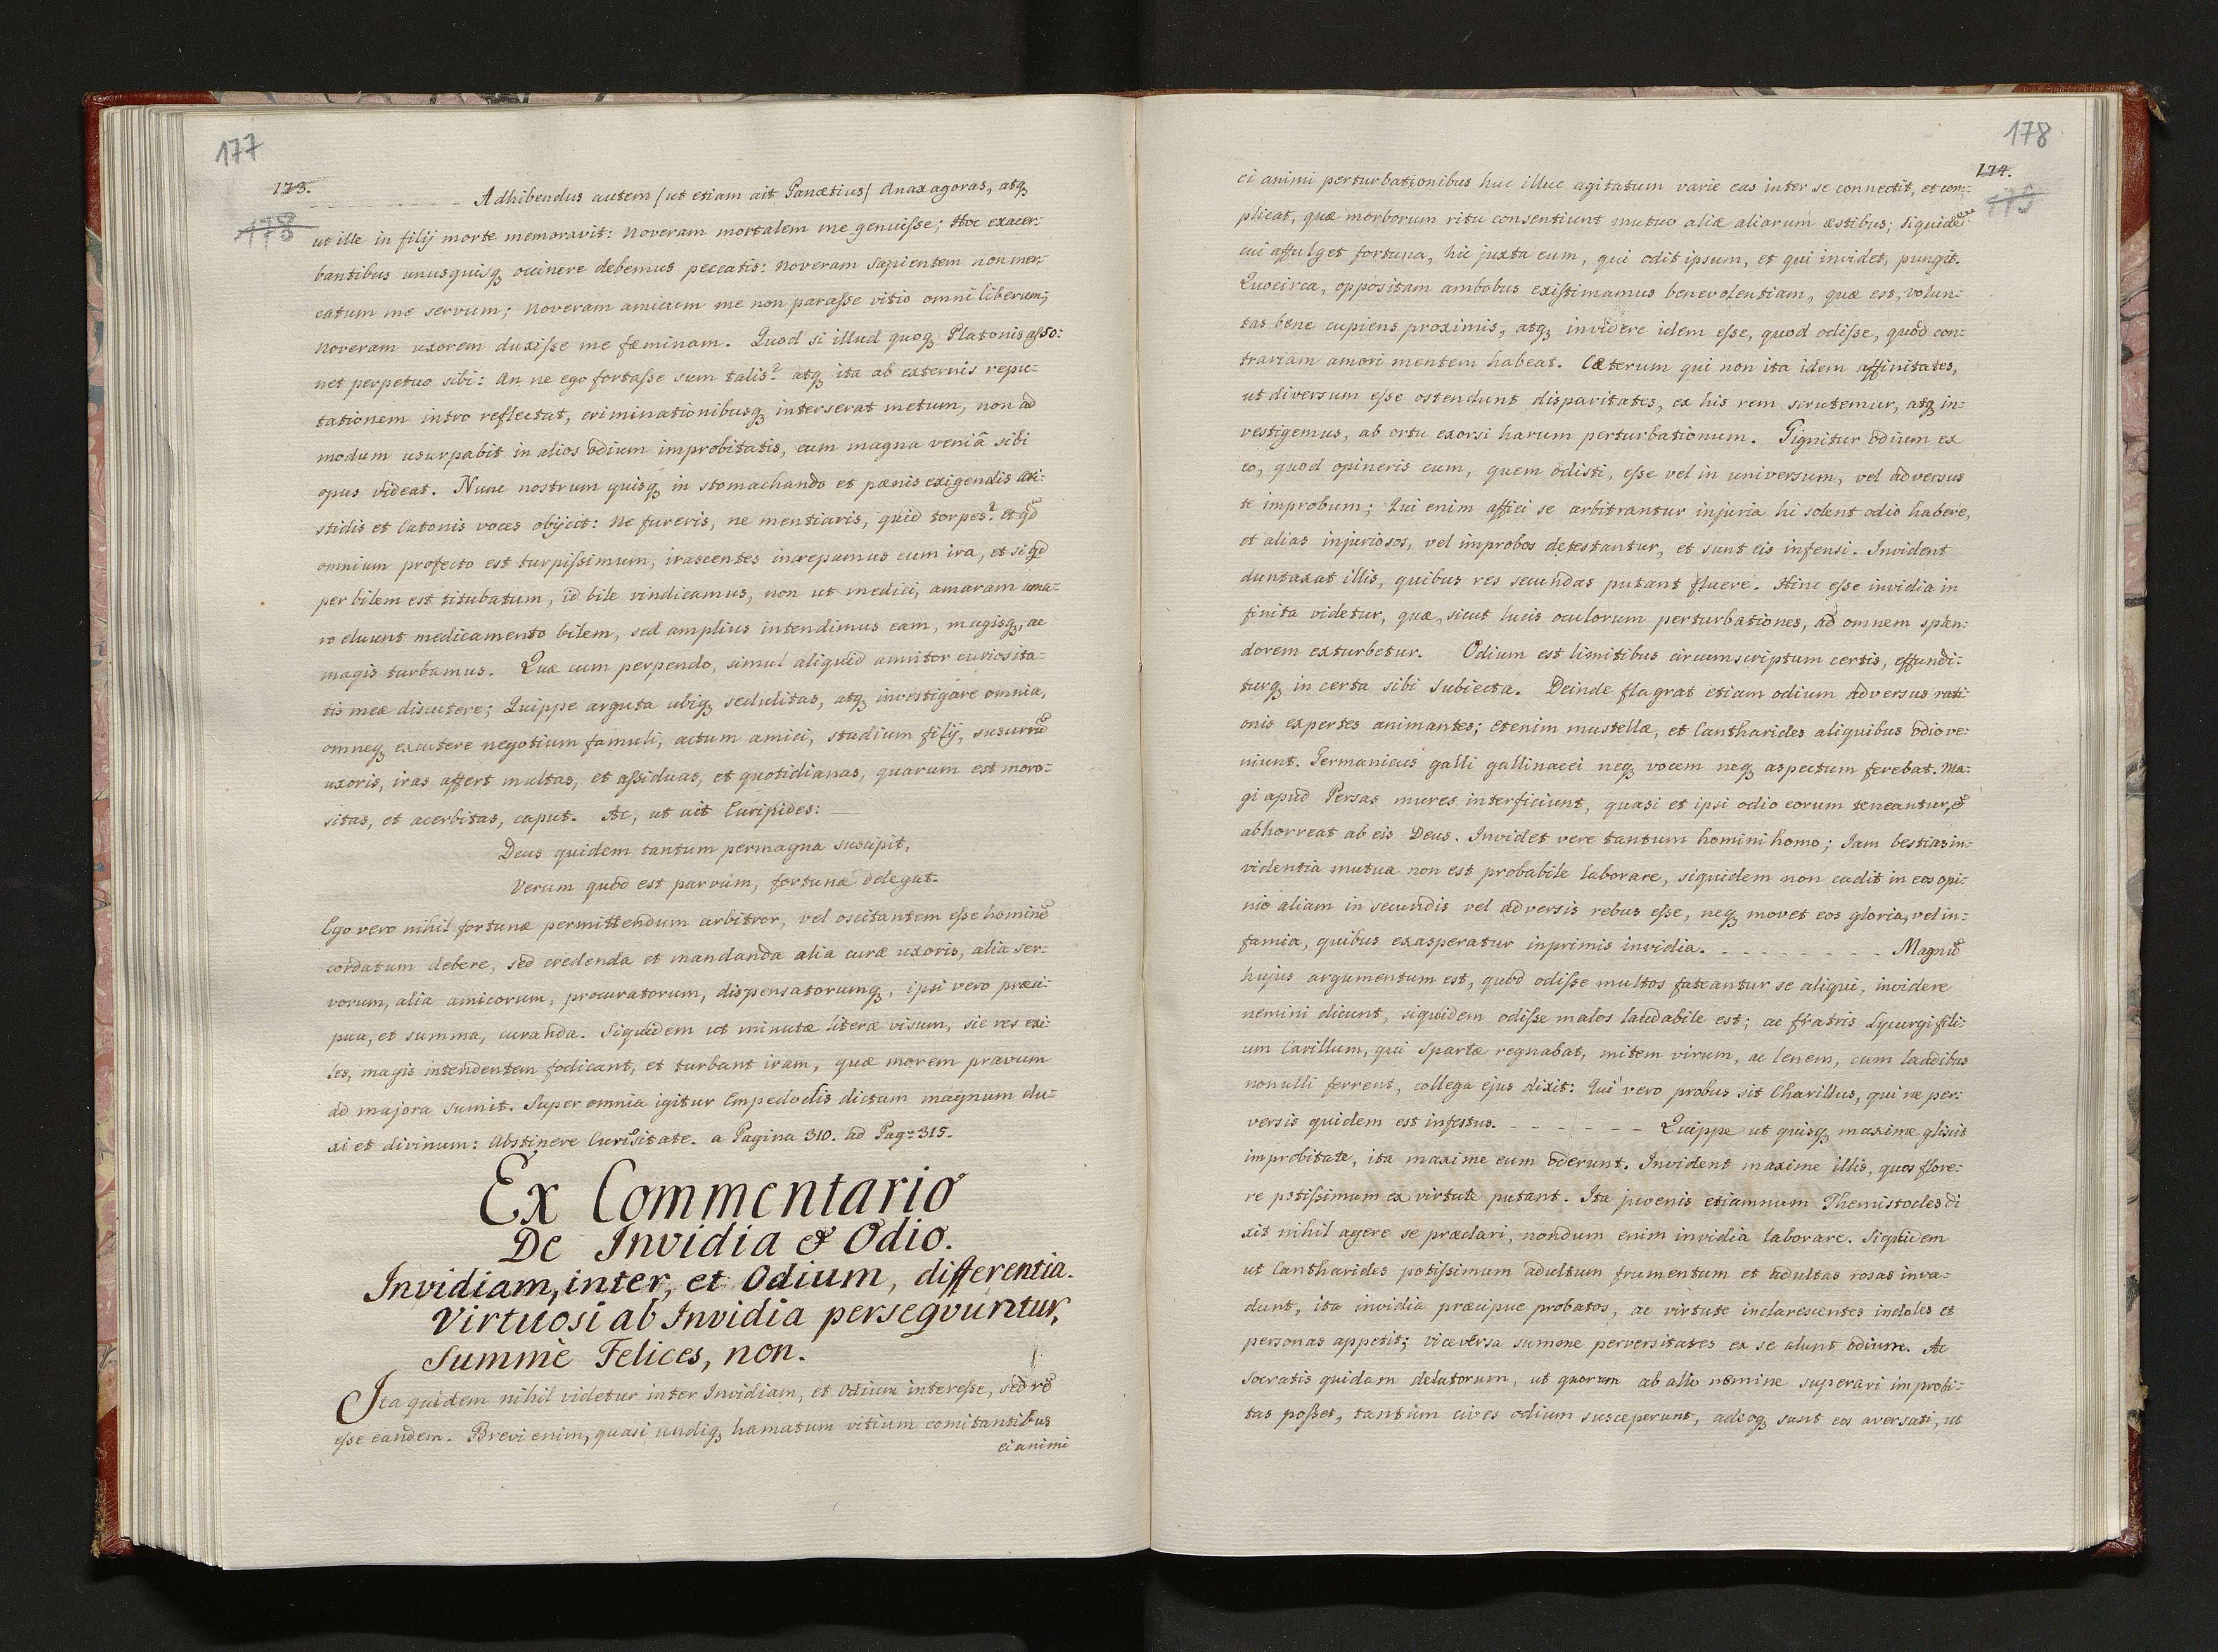 177
173.
178
- - - - - - - - - Adhibendus autem (ut etiam ait Panætius) Anaxagoras, atq
ut ille in filij morte memoravit: Noveram mortalem me genuisse; Hoc exacer-
bantibus unusquisq occinere debemus peccatis: Noveram Sapientem non mer-
catum me servum; Noveram amicum me non parasse vitio omni liberum;
Noveram uxorem duxisse me fæminam. Quod si illud quoq Platonis asso:
net perpetuo sibi: An ne ego fortasse sum talis? atq ita ab externis repu-
tationem intro reflectat, criminationibusq interserat metum, non ad
modum usurpabit in alios odium improbitatis, cum magna veniâ sibi
opus videat. Nunc nostrum quisq in stomachando et pænis exigendis Ari-
stidis et Catonis voces obijcit: Ne fureris, ne mentiaris, quid torpes? et qd
omnium profecto est turpissimum, irascentes increpamus cum ira, et si qd
per bilem est titubatum, id bile vindicamus, non ut medici, amaram ama-
ro eluunt medicamento bilem, sed amplius intendimus eam, magisq, ac
magis turbamus. Quæ cum perpendo, simul aliquid annitor curiosita-
tis meæ discutere; Quippe arguta ubiq sedulitas, atq investigare omnia,
omneq excutere negotium famuli, actum amici, studium filij, susurrū
uxoris, iras affert multas, et assiduas, et quotidianas, quarum est moro-
sitas, et acerbitas, caput. Ac, ut ait Euripides: —
Deus quidem tantum permagna suscipit,
Verum quod est parvum, fortunæ delegat.
Ego vero nihil fortunæ permittendum arbitror, vel oscitantem esse hominē
cordatum debere, sed credenda et mandanda alia curæ uxoris, alia ser-
vorum, alia amicorum, procuratorum, dispensatorumq, ipsi vero præci-
pua, et summa, curanda. Siquidem ut minutæ literæ visum, sic res exi-
les, magis intendentem fodicant, et turbant iram, quæ morem pravum
ad majora sumit. Super omnia igitur Empedoclis dictum magnum du-
xi et divinum: Abstinere Curisitate. a Pagina 310. ad Pag. 315.
Ex Commentario
De Invidia & Odio.
Invidiam, inter, et Odium, differentia.
Virtuosi ab Invidia perseqvuntur,
Summè Felices, non.
Ita quidem nihil videtur inter Invidiam, et Odium interesse, sed rē
esse eandem. Brevi enim, quasi undiq hamatum vitium comitantibus
ei animi
178
174.
179
ei animi perturbationibus huc illuc agitatum varie eas inter se connectit, et com-
plicat, quæ morborum ritu consentiunt mutuo aliæ aliarum æstibus; Siquidē
cui affulget fortuna, hic juxta eum, qui odit ipsum, et qui invidet, pungit.
Quocirca, oppositam ambobus existimamus benevolentiam, quæ est, volun-
tas bene cupiens proximis, atq invidere idem esse, quod odisse, quod con-
trariam amori mentem habeat. Cæterum qui non ita idem affinitates,
ut diversum esse ostendunt disparitates, ex his rem scrutemur, atq in-
vestigemus, ab ortu exorsi harum perturbationum. Gignitur odium ex
eo, quod opineris eum, quem odisti, esse vel in universum, vel adversus
te improbum; Qui enim affici se arbitrantur injuria hi solent odio habere,
et alias injuriosos, vel improbos detestantur, et sunt eis infensi. Invident
duntaxat illis, quibus res secundas putant fluere. Hinc esse invidia in
finita videtur, quæ, sicut lucis oculorum perturbationes, ad omnem splen-
dorem exturbetur. Odium est limitibus circumscriptum certis, effundi-
turq in certa sibi subiecta. Deinde flagrat etiam odium adversus rati
onis expertes animantes; etenim mustellæ, et Cantharides aliquibus odio ve-
niunt. Germanicus galli gallinacei neq vocem neq aspectum ferebat. Ma-
gi apud Persas mures interficiunt, quasi et ipsi odio eorum teneantur, &
abhorreat ab eis Deus. Invidet vere tantum homini homo; Iam bestias in-
videntia mutua non est probabile laborare, siquidem non cadit in eos opi-
nio aliam in secundis vel adversis rebus esse, neq movet eos gloria, vel in-
famia, quibus exasperatur inprimis invidia. - - - - - - - - Magnū
hujus argumentum est, quod odisse multos fateantur se aliqui, invidere
nemini dicunt, siquidem odisse malos laudabile est; ac fratris Lycurgi fili-
um Carillum, qui Spartæ regnabat, mitem virum, ac lenem, cum laudibus
nonulli ferrent, collega ejus dixit: Qui vero probus sit Charillus, qui ne per-
versis quidem est infestus. - - - - - - - Quippe ut quisq maxime gliscit
improbitate, ita maxime eum oderunt. Invident maxime illis, quos flore-
re potissimum ex virtute putant. Ita juvenis etiamnum Themistocles di
xit nihil agere se præclari, nondum enim invidia laborare. Siquidem
ut Cantharides potissimum adultum frumentum et adultas rosas inva-
dunt, ita invidia præcipue probatos, ac virtute inclarescentes indoles et
personas appetit; viceversa summe perversitates ex se alunt odium. Ac
Socratis quidam delatorum, ut quorum ab allo nemine superari improbi-
tas posset, tantùm cives odium susceperunt, adeoq sunt eos aversati, ut